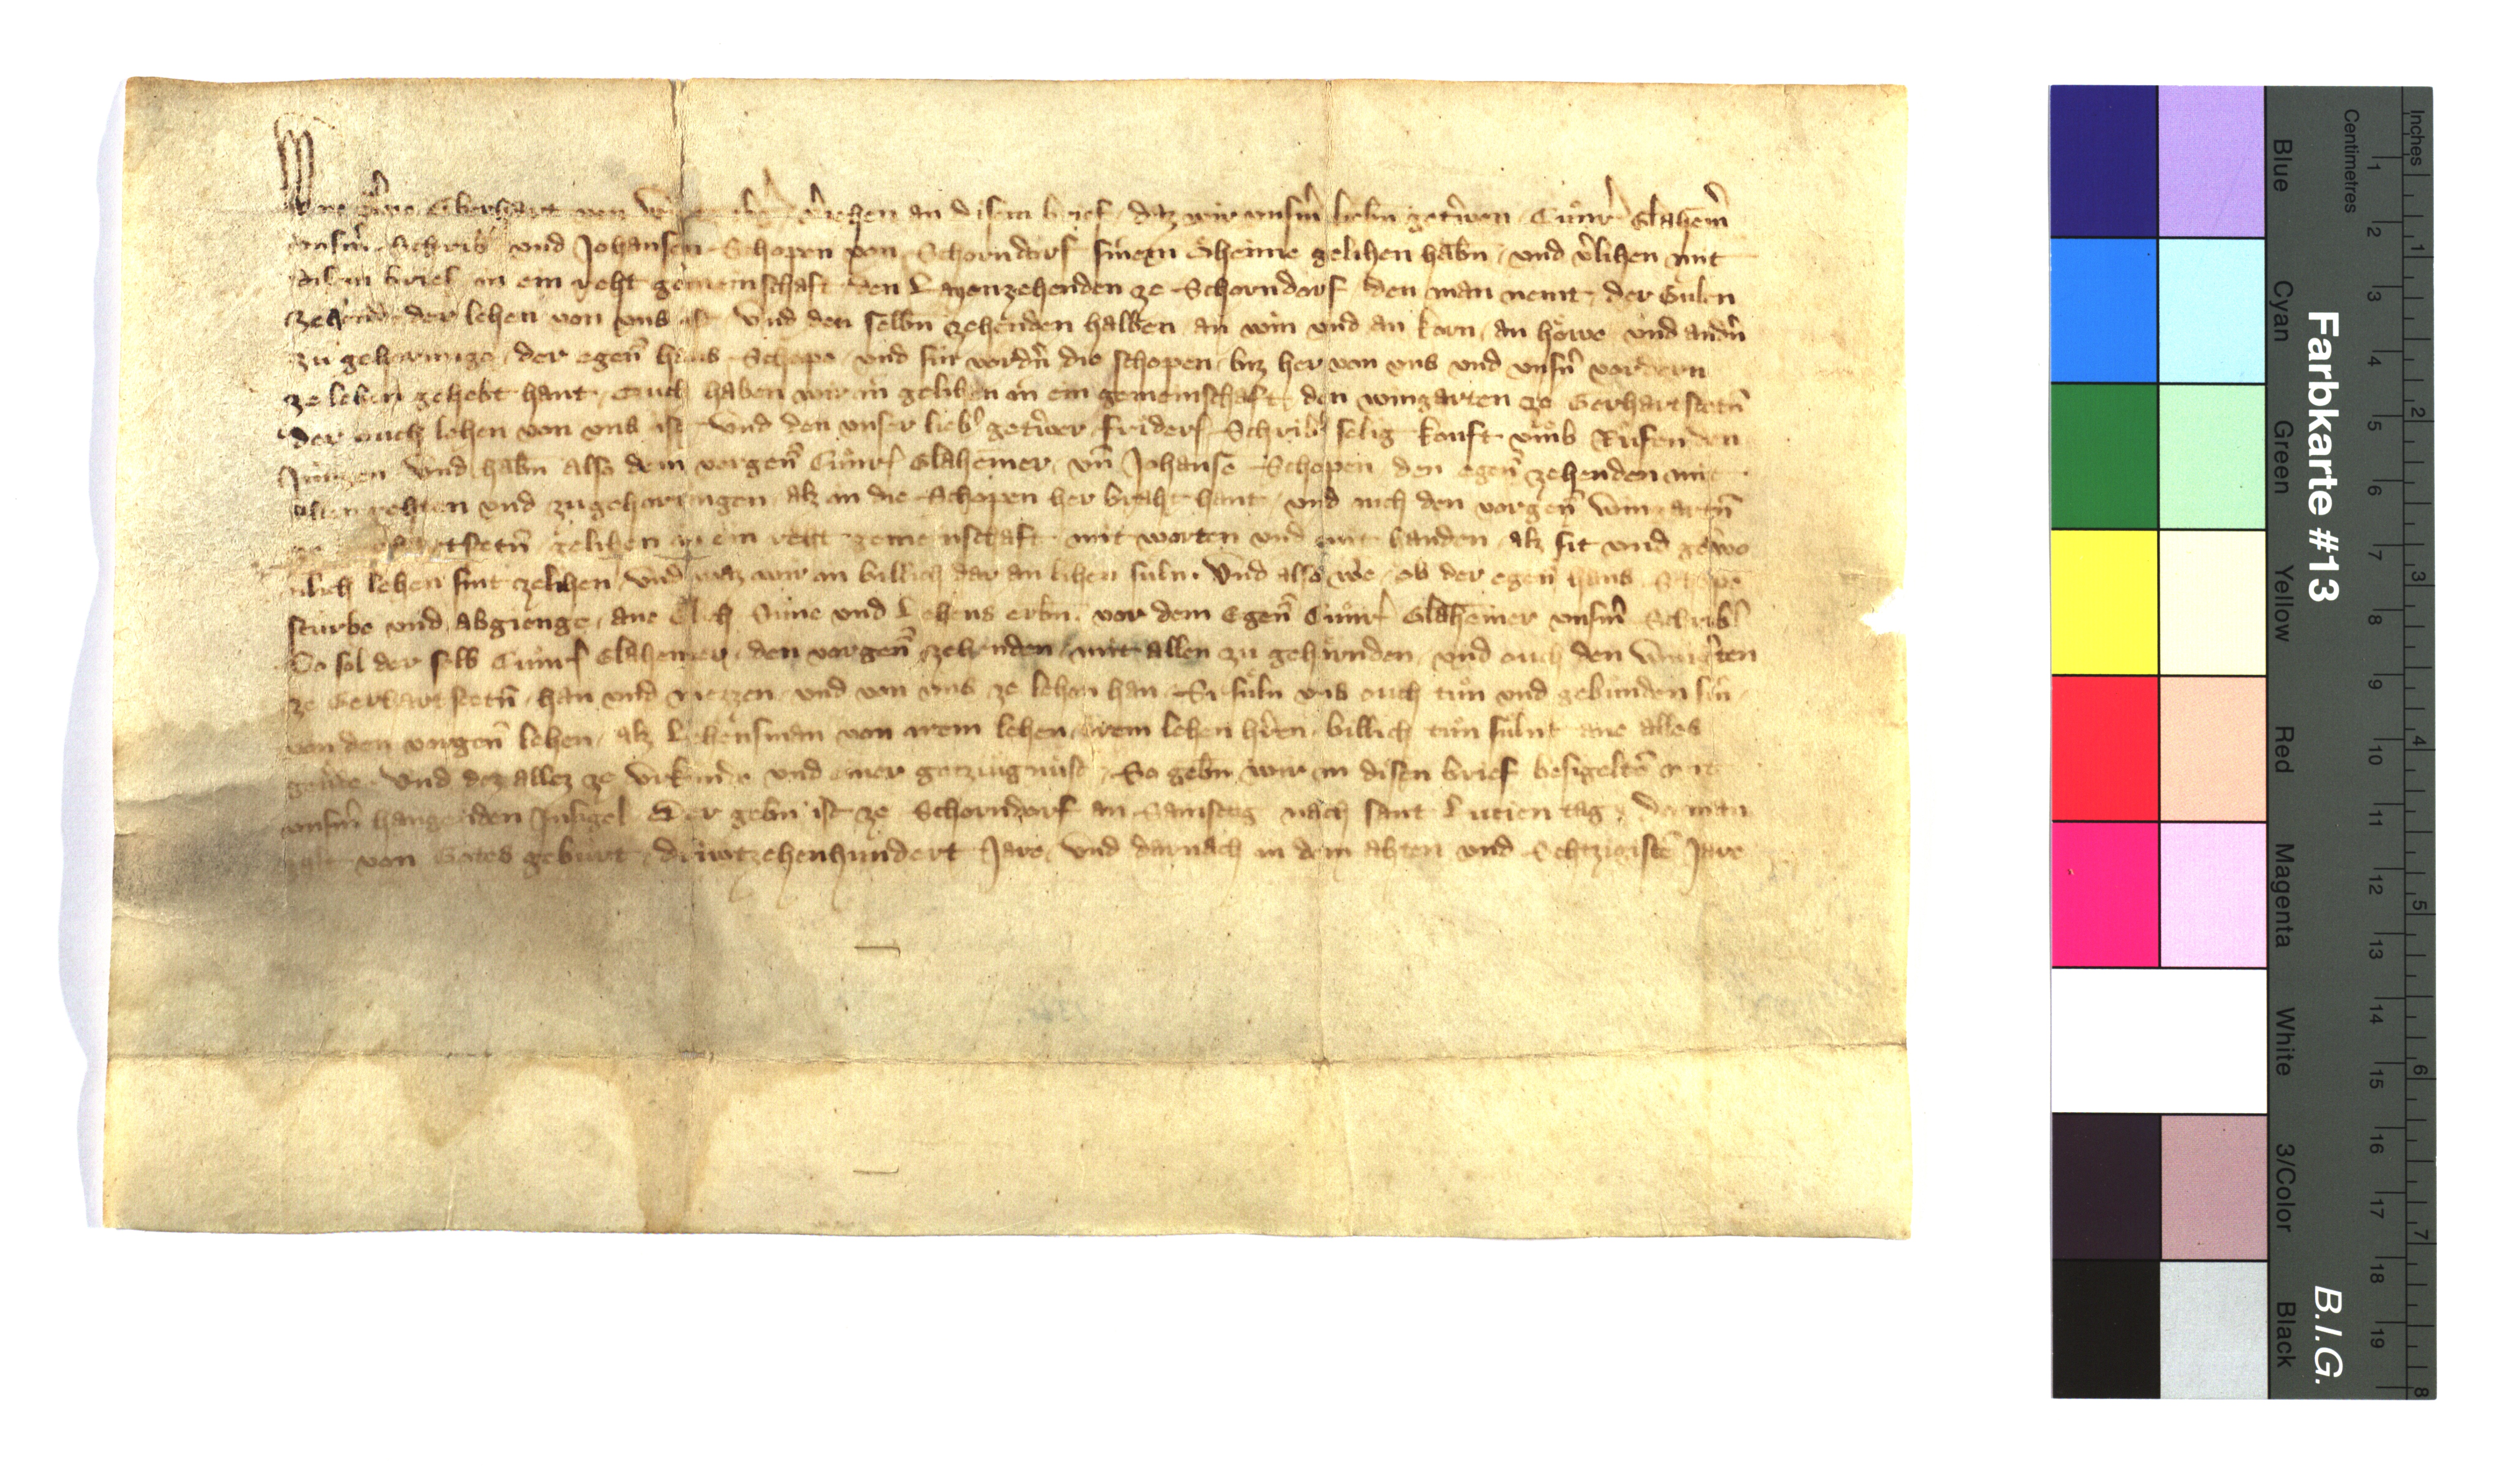 Wir Grave Eberhart von v̓iehen an disem brief / daz wir unsm̄ liebn̄ getrv̓wen Cůnr̄ Glahem̄
unsm̄ Schrib̓ und Johansen Schopen von Schorndorf sinem Oheime gelihen habn̄ / und v̓lihen mit
disem brief in ein reht gemeinschaft den Layenzehenden ze Schorndorf / den man nemt / der Guln
zehende der lehen von uns ist Und den selbn̄ zehenden halben an win und an korn / an hôwe und andn̄
zu gehorunge / der egen̄ hans Schope / und sin vordn̄ die schopen / biz her von uns und unsn̄ vordern
ze lehen gehebt hant / Ouch haben wir in gelihen in ein gemeinschaft / den wingarten ze Gerhartstetn̄
der ouch lehen von uns ist Und den unser lieb̓ getrv̓wer friderſ Schrib̓ selig kouft vmb Růfen den
Jungen Und habn̄ also dem vorgen̄ Cůnrſ Glahemer / vn̄ Johansē Schopen / den egen̄ zehenden mit
allen rehten und zugehorungen alz in die Schopen her braht hant / und ouch den vorgen̄ wingartn̄
ze Gerhartstetn̄ gelihen in ein reht gemeinschaft mit worten und mit handen / alz sit und gewo
nlich lehen sint zelihen / Und waz wir in billich dar an lihen suln. Und also wê / ob der egen̄ hans Schope
sturbe und abgienge / ane Elich Süne und Lehens erbn̄. vor dem Egen̄ Cůnrſ Glahemer unsm̄ Schrib̓
So sol der selb Cůnrſ Glahemer / den vorgen̄ zehenden / mit allen zu gehôrnden / und ouch den wingten
ze Gerhartstetn̄ / han und niezzen / und von uns ze lehen han / Si sůln uns ouch tůn und gebunden sin
von den vorgen̄ lehen / alz Lehensman von irem lehen / irem lehen hr̄en / billich tůn sůlnt ane alles
geűde. Und dez allez ze Urkunde und einer gezzugnuse / So gebn̄ wir in disen brief besigeltē mit
unsm̄ hangenden Insigel Der gebn̄ ist ze Schorndorf an Samstag nach sant Lucien tag / do man
zalt von Gotes gebůrt / drůwtzehenhundert Jare / Und darnach in dem ahten und Sehtzigistē Jare
Farbkarte #13
B.I.G.
Centimetres
Inches
Blue
Cyan
Green
Yellow
Red
Magenta
White
3/Color
Black
1 2 3 4 5 6 7 8 9 10 11 12 13 14 15 16 17 18 19
1 2 3 4 5 6 7 8